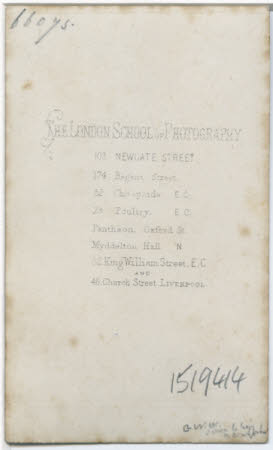 660ys.
THE LONDON SCHOOL OF PHOTOGRAPHY
103 NEWGATE STREET
174 Regent Street.
52 Cheapside. E.C.
23 Poultry. E.C.
Pantheon. Oxford St.
Myddelton Hall N
32 King William Street, E.C
AND
46 Church Street LIVERPOOL
1519414
G.W.W.